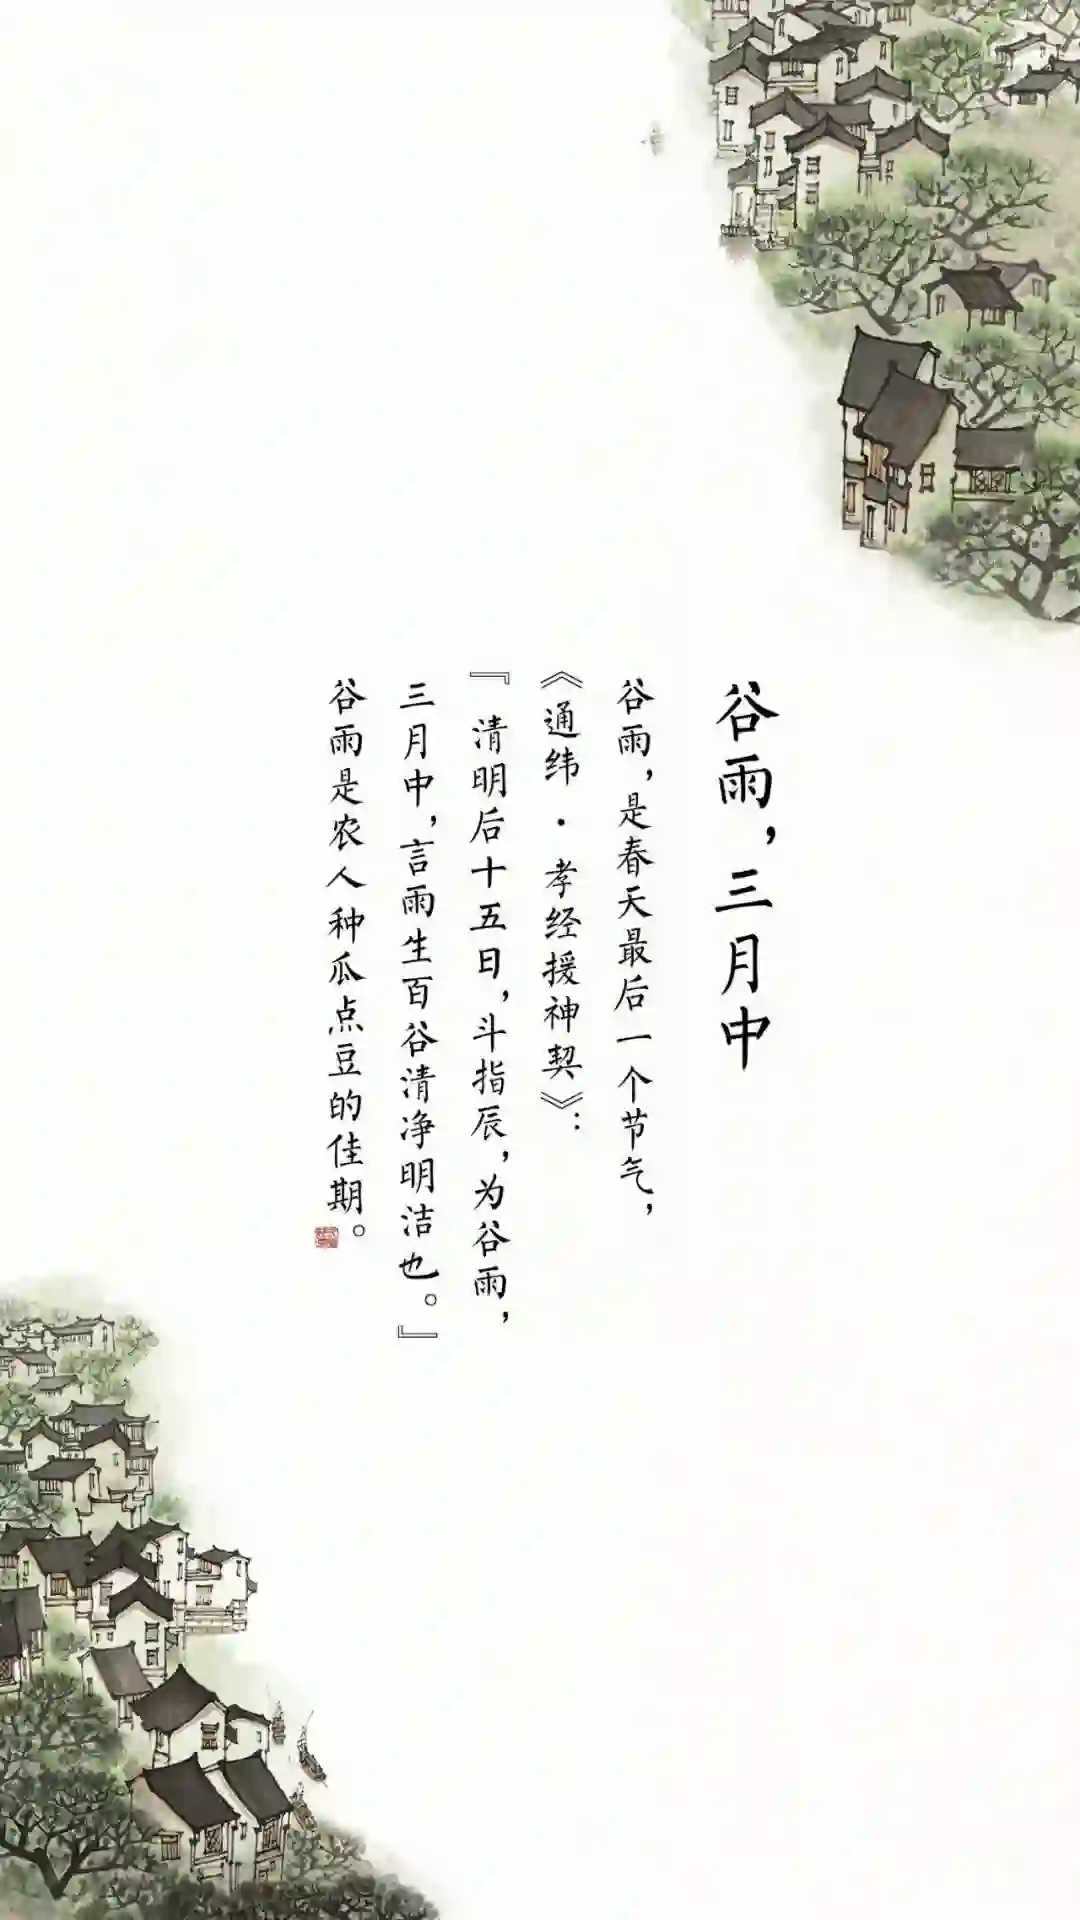 谷雨，三月中
谷雨，是春天最后一个节气，
《通纬·孝经援神契》：
『清明后十五日，斗指辰，为谷雨，
三月中，言雨生百谷清净明洁也。』
谷雨是农人种瓜点豆的佳期。